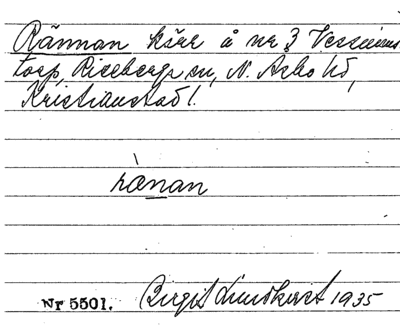 Rännan kärr å nr 3 Vessmans
torp, Riseberga sn, N. Åsbo hd,
Kristianstad l.
rænan
Nr 5501. Birgit Lundkvist 1935